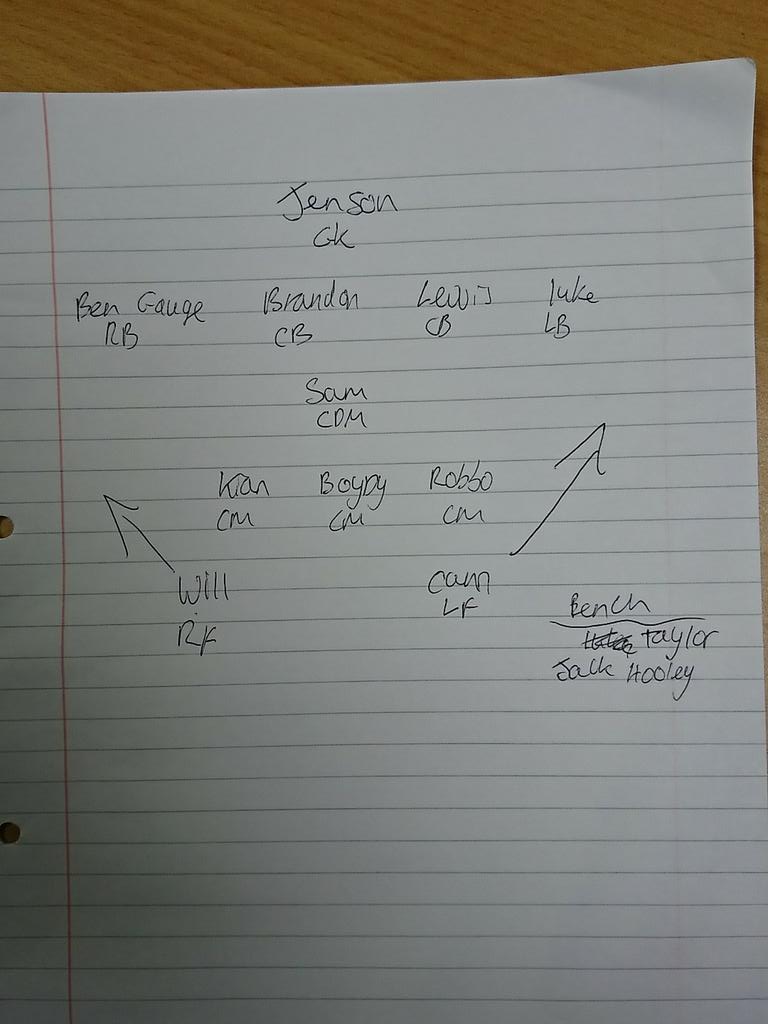 Jenson
GK
Ben Gauge Brandon Lewis luke
RB CB CB LB
Sam
CDM
Kian Robbo
CM CM CM
Will
RF LF
Bench
Taylor
Jack Hooley